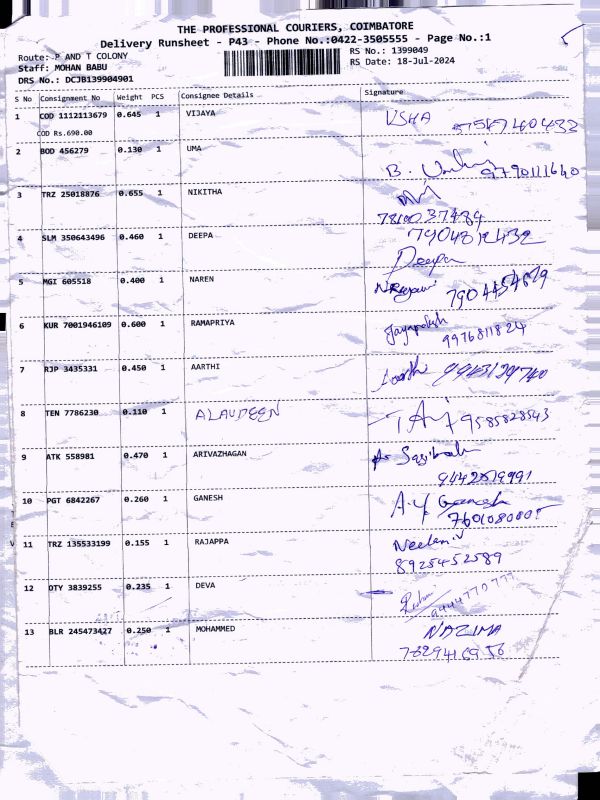 THE PROFESSIONAL COURIERS, COIMBATORE
Delivery Runsheet - P43 - Phone No.:0422-3505555 - Page No.:1
Route: P AND T COLONY
RS No.: 1399049
Staff: MOHAN BABU
RS Date: 18-Jul-2024
DRS No.: DCJB139904901
S No Consignment No Weight PCS Consignee Details Signature
1 COD 1112113679 0.645 1 VIJAYA USHA
COD Rs.690.00
2 BOD 456279 0.130 1 UMA B.
9790111640
3 TRZ 25018876 0.655 1 NIKITHA
4 SLM 350643496 0.460 1 DEEPA 7904812432
Deepa
5 MGI 605518 0.400 1 NAREN
6 KUR 7001946109 0.600 1 RAMAPRIYA
9976811824
7 RJP 3435331 0.450 1 AARTHI Aarthi
8 TEN 7786230 0.110 1 ALAUDEEN 9585828543
9 ATK 558981 0.470 1 ARIVAZHAGAN
10 PGT 6842267 0.260 1 GANESH A.Y. Ganesh
11 TRZ 135533199 0.155 1 RAJAPPA Neelam.V
8925452589
12 OTY 3839255 0.235 1 DEVA
9444770777
13 BLR 245473427 0.250 1 MOHAMMED NAZIMA